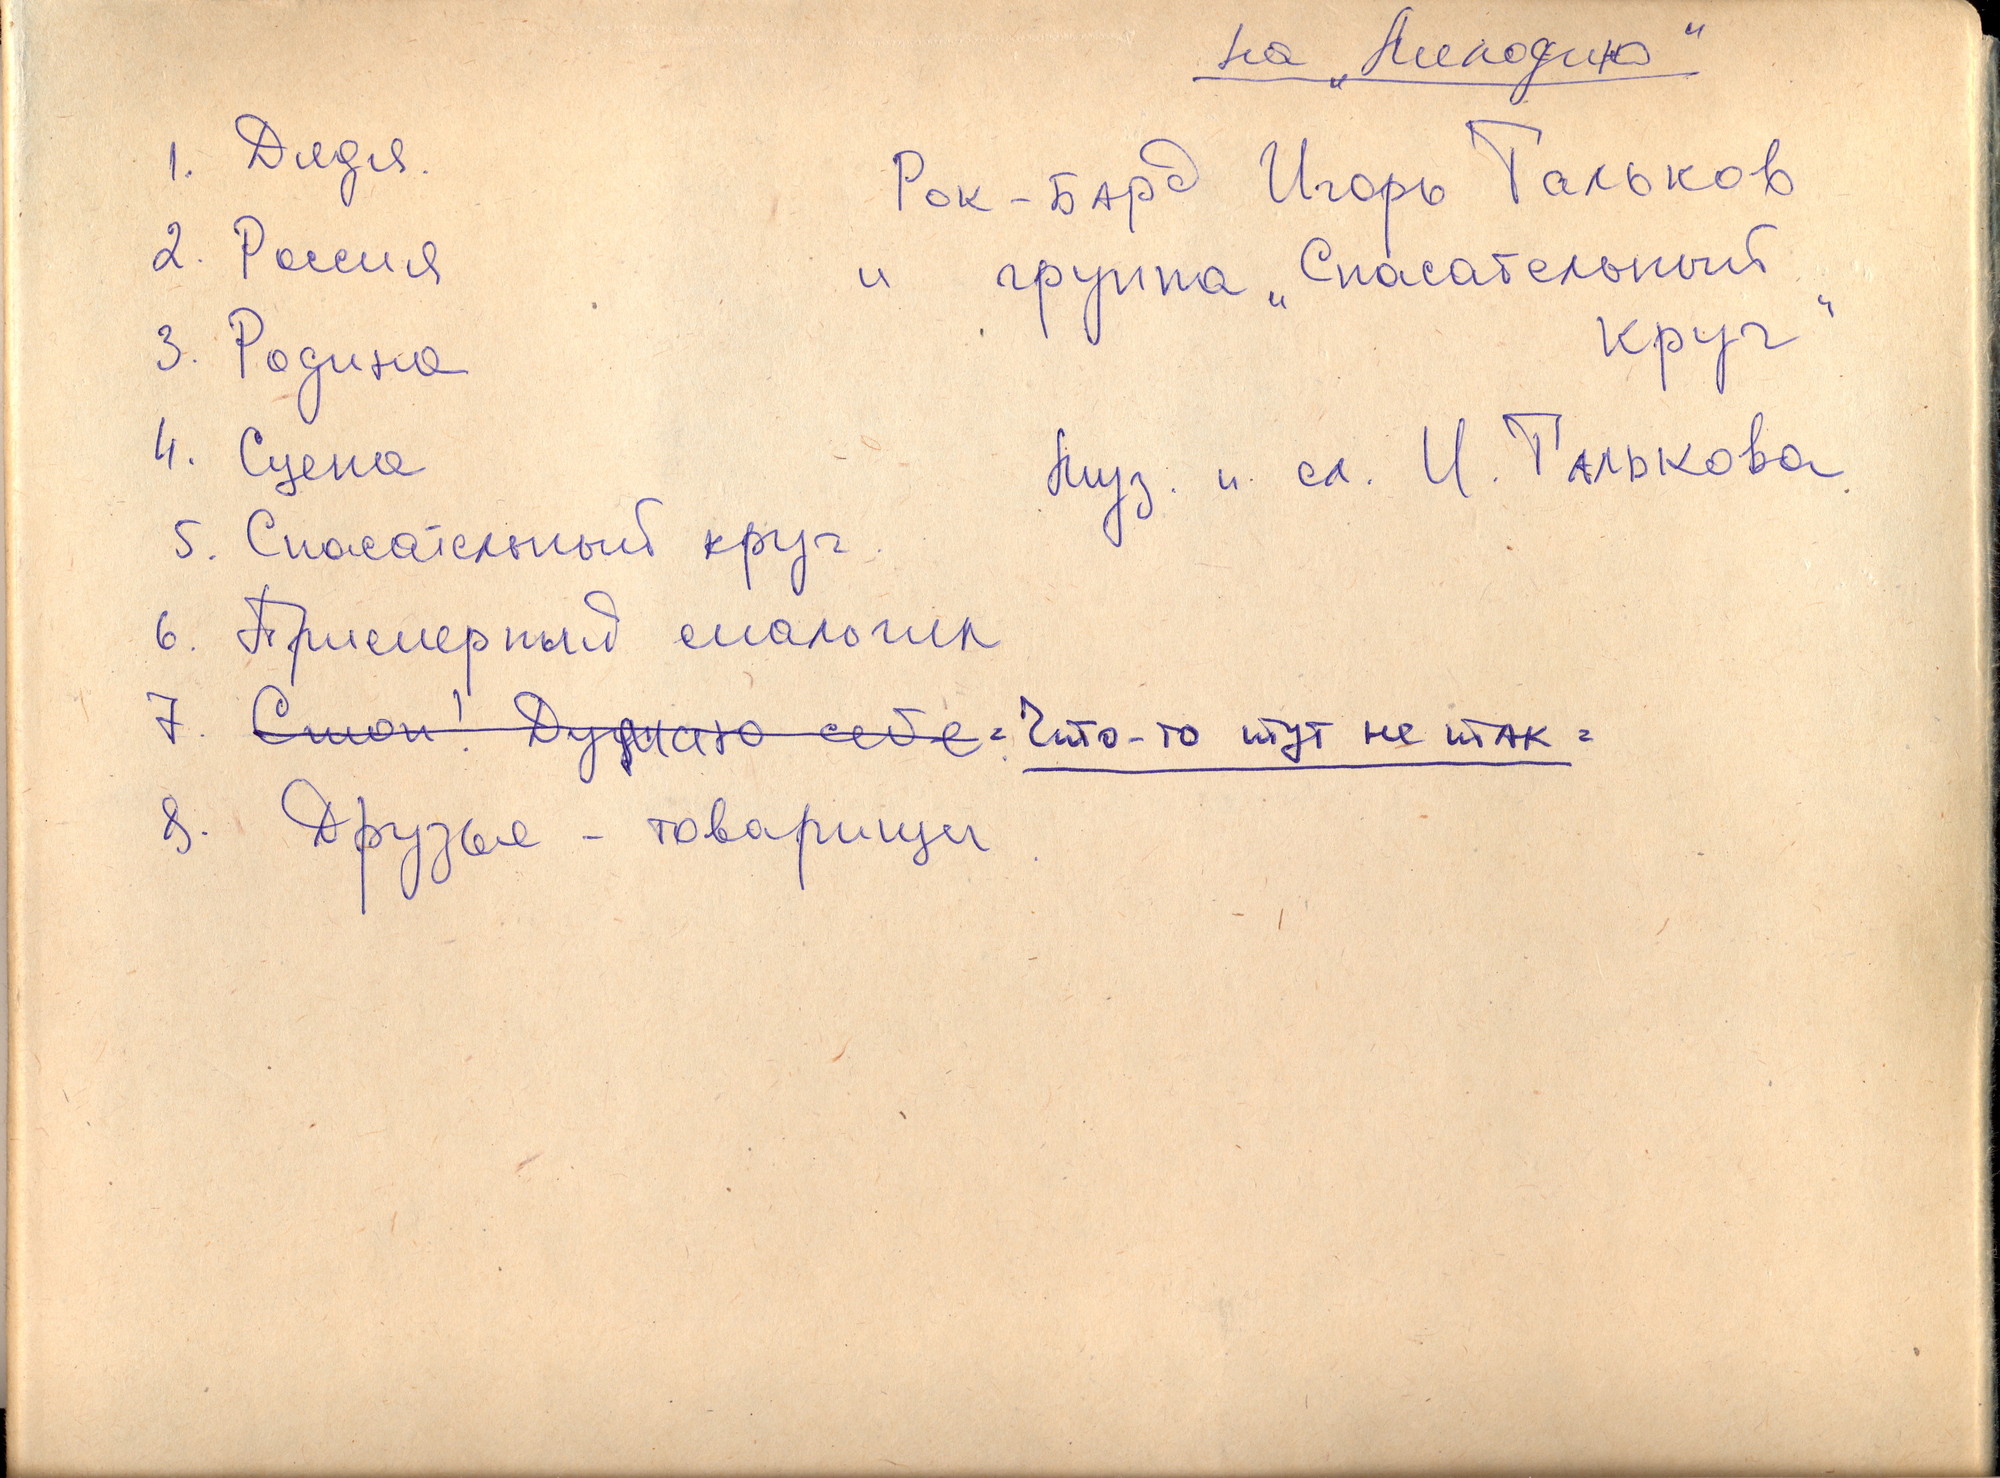 на „Мелодию"
1. Дядя.
2. Россия
3. Родина
4. Сцена
5. Спасательный круг.
6. Примерный мальчик
7. Стоп! Думаю себе = Что-то тут не так =
8. Друзья - товарищи.
Рок - Бард Игорь Тальков
и группа „Спасательный
круг"
Муз. и сл. И. Талькова.